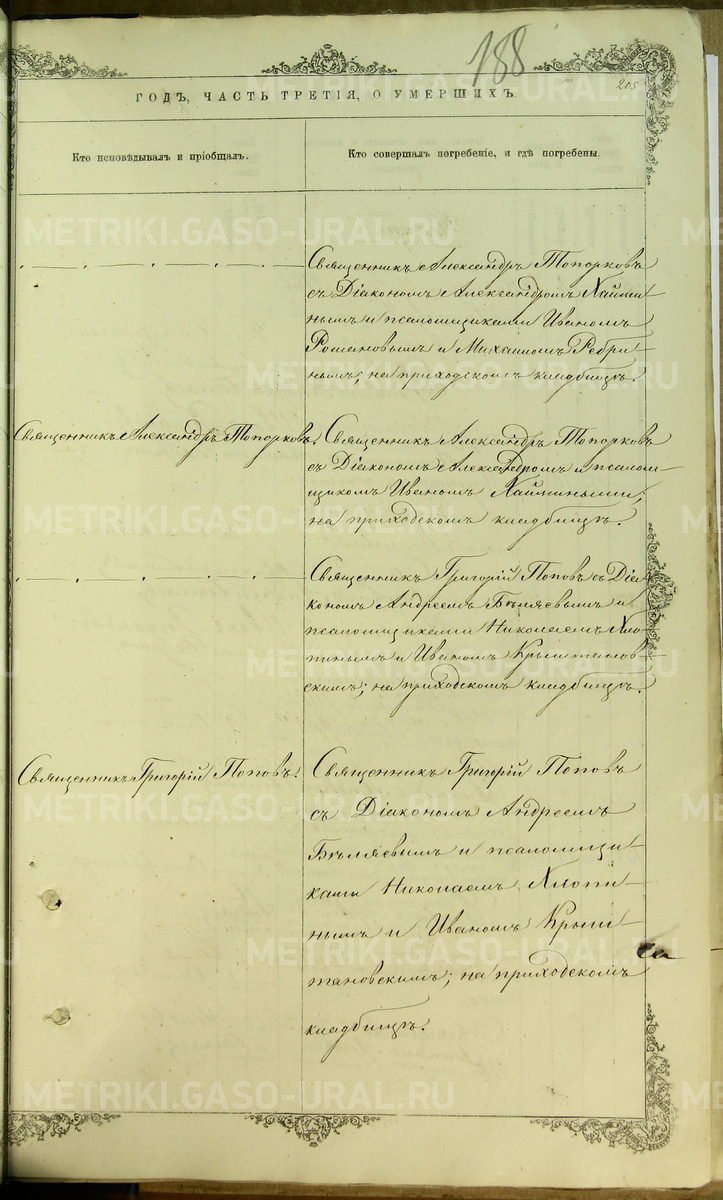 188
205
ГОДЪ, ЧАСТЬ ТРЕТІЯ, О УМЕРШИХЪ.
Кто исповѣдывалъ и пріобщалъ.
Кто совершалъ погребеніе, и гдѣ погребены.
METRIKI.GASO-URAL.RU
Священникъ Александръ Топорковъ
съ Діакономъ Александромъ
нымъ и псаломщиками Иваномъ
Романовымъ и Михаиломъ Ребри-
нымъ; на приходскомъ кладбищѣ.
Священникъ Александръ Топорковъ.
Священникъ Александръ Топорковъ
съ Діакономъ Александромъ и псалом-
щикомъ Иваномъ
на приходскомъ кладбищѣ.
Священникъ Григорій Поповъ съ Діа-
кономъ Андреемъ Бѣляевымъ и
псаломщиками Николаемъ Хло-
пинымъ и Иваномъ Крыштанов-
скимъ; на приходскомъ кладбищѣ.
Священникъ Григорій Поповъ.
Священникъ Григорій Поповъ
съ Діакономъ Андреемъ
Бѣляевымъ и псаломщи-
ками Николаемъ Хлопи-
нымъ и Иваномъ Крыш-
тановскимъ; на приходскомъ
кладбищѣ.